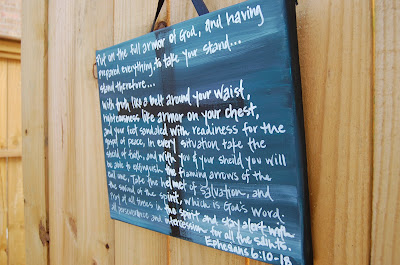 Put on the full armor of God, and having
prepared everything, to take your stand...
stand therefore...
with truth like a belt around your waist,
righteousness like armor on your chest,
and your feet sandaled with readiness for the
gospel of peace, in every situation take the
shield of faith, and with you & your shield you will
be able to extinguish the flaming arrows of the
evil one, Take the helmet of salvation, and
the sword of the spirit, which is God's word.
Pray at all times in the spirit and stay alert with
all perseverance and intercession for all the saints.
Ephesians 6:10-18